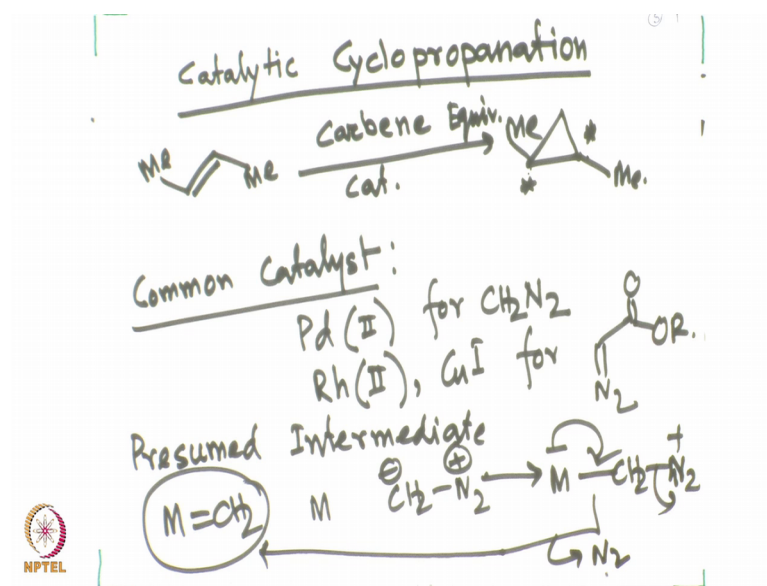 Catalytic Cyclopropanation
Me Me Carbene Equiv. Cat. Me * * Me.
Common Catalyst:
Pd (II) for CH2N2
Rh(II), CuI for O OR. N2
Presumed Intermediate
M=CH2 M ⊖ CH2-N2 ⊕ M CH2-N2 +
N2
NPTEL